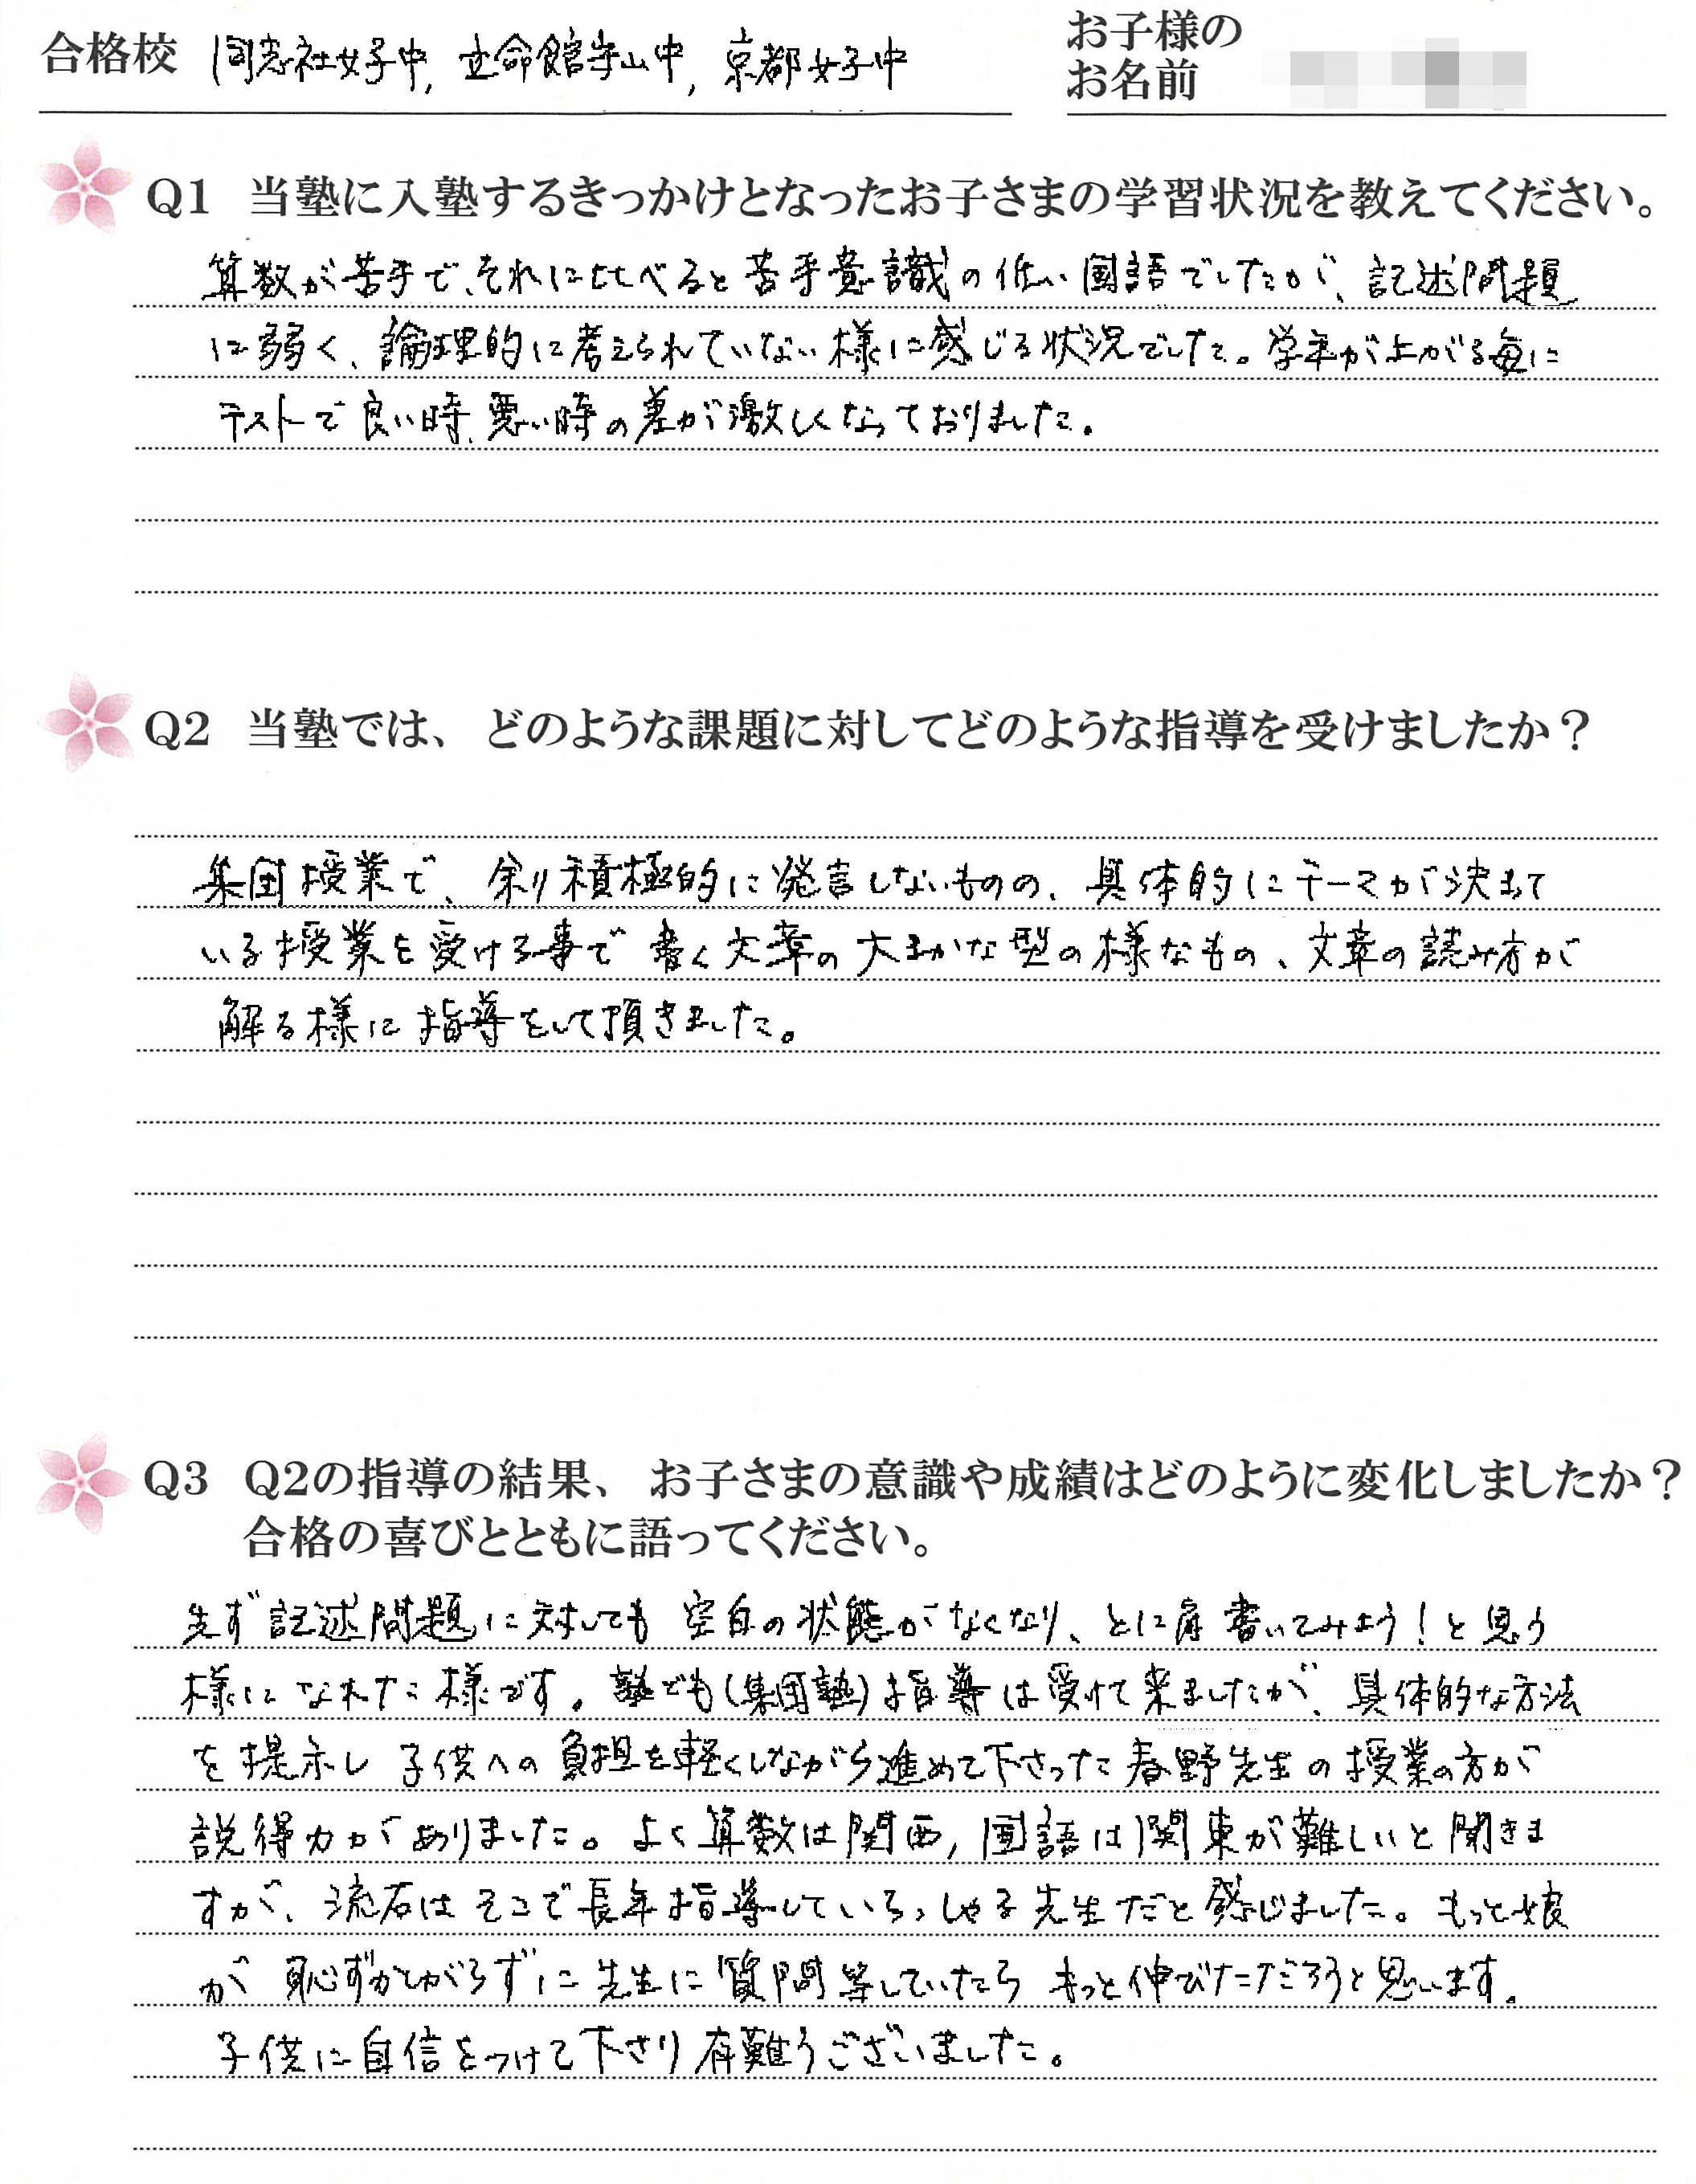 合格校 同志社女子中, 立命館守山中, 京都女子中
お子様の
お名前
Q1 当塾に入塾するきっかけとなったお子さまの学習状況を教えてください。
算数が苦手で、それに比べると苦手意識の低い国語でしたが、記述問題
に弱く、論理的に考えられていない様に感じる状況でした。学年が上がる毎に
テストで良い時、悪い時の差が激しくなっておりました。
Q2 当塾では、どのような課題に対してどのような指導を受けましたか？
集団授業で、余り積極的に発言しないものの、具体的にテーマが決まって
いる授業を受ける事で書く文章の大まかな型の様なもの、文章の読み方が
解る様に指導をして頂きました。
Q3 Q2の指導の結果、お子さまの意識や成績はどのように変化しましたか？
合格の喜びとともに語ってください。
先ず記述問題に対しても空白の状態がなくなり、とに角書いてみよう！と思う
様になれた様です。塾でも(集団塾)指導は受けて来ましたが、具体的な方法
を提示し子供への負担を軽くしながら進めて下さった春野先生の授業の方が
説得力がありました。よく算数は関西, 国語は関東が難しいと聞きま
すが、流石はそこで長年指導していらっしゃる先生だと感じました。もっと娘
が恥ずかしがらずに先生に質問等していたらもっと伸びただろうと思います。
子供に自信をつけて下さり有難うございました。